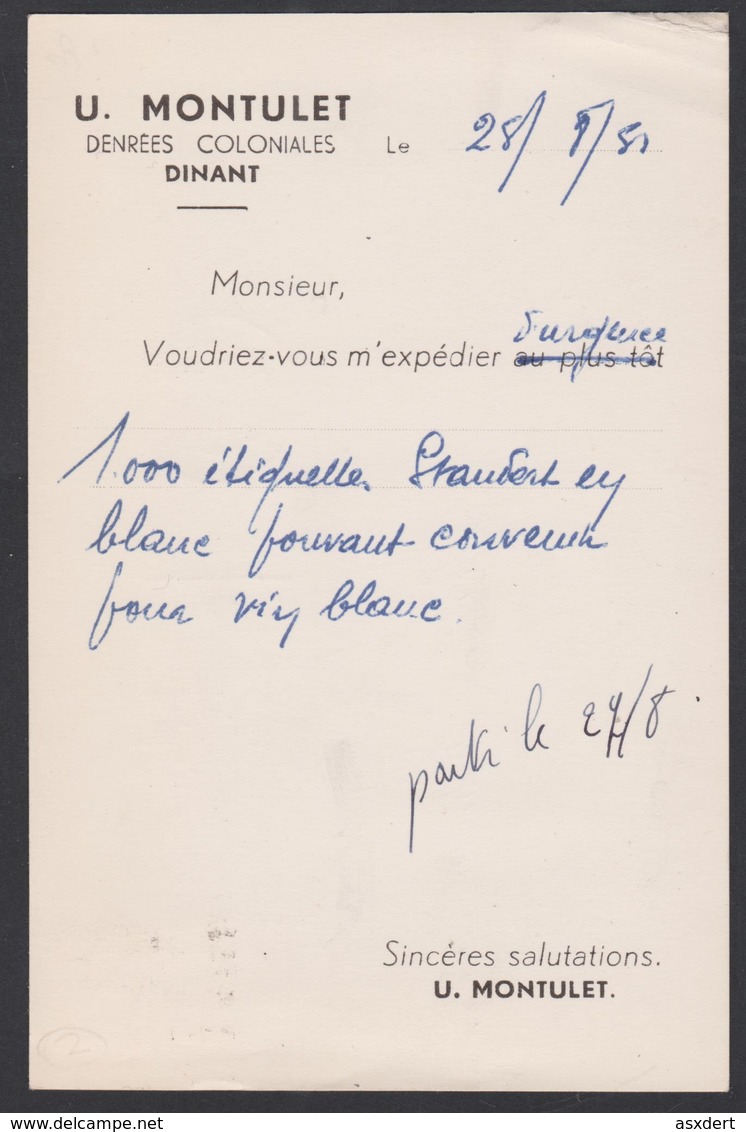 U. MONTULET
DENRÉES COLONIALES Le 28/8/51
DINANT
Monsieur,
d'urgence
Voudriez-vous m'expédier au plus tôt
1.000 étiquettes Standart en
blanc pouvant convenir
pour vin blanc.
parti le 29/8.
Sincères salutations.
U. MONTULET.
2
www.delcampe.net
asxdert